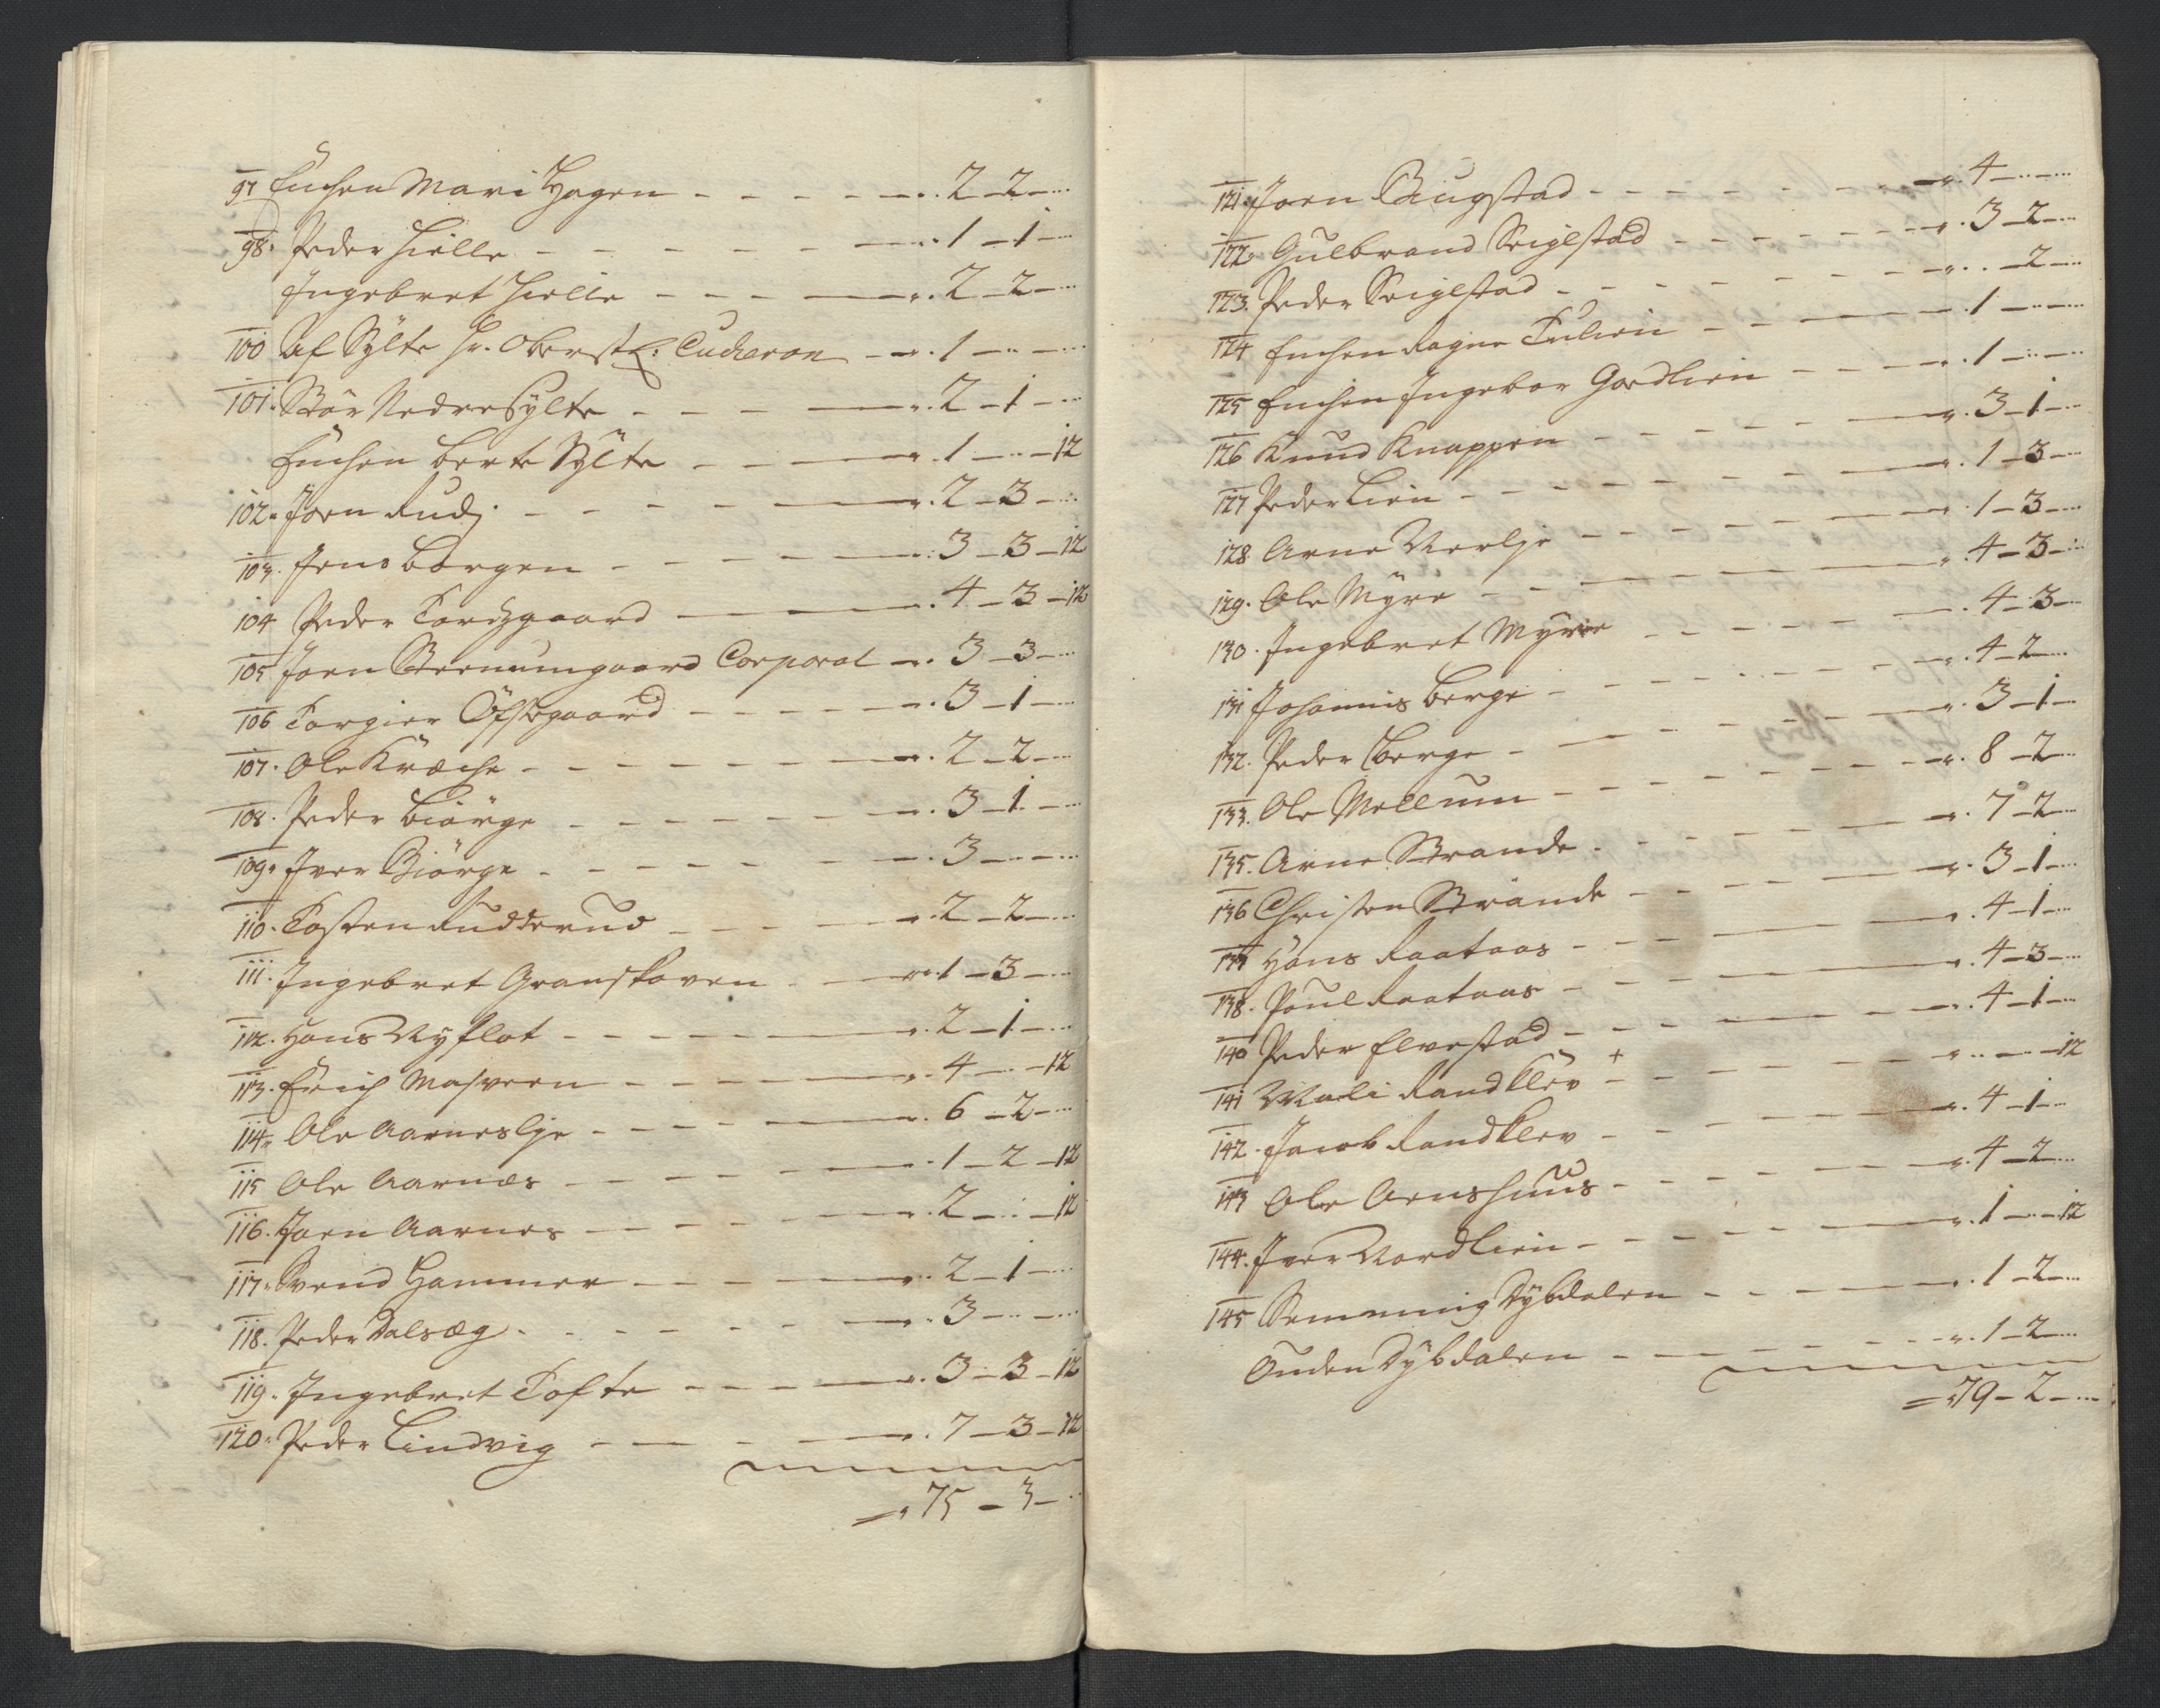 97 Enchen Mari Hagen - - - - - 2 - 2 - ...
98. Peder Hielle - - - - - 1 - 1 - ...
Ingebret Hielle - - - - 2 - 2 - ...
100 Af Sylte Hr. Oberstl: Cucheron - 1 - .. - ...
101. Bør Nedre Sylte - - - - 2 - 1 - ...
Enchen Berte Sylte - - - - 1 - .. - 12
102. Joen Rud - - - - - 2 - 3 - ...
103. Jens Borgen - - - - - 3 - 3 - 12
104 Peder Tordsgaard - - - - 4 - 3 - 12
105 Joen Steenumgaard Corporal - 3 - 3 - ...
106 Torgier Ofstegaard - - - - - 3 - 1 - ...
107. Ole Kræche - - - - - - 2 - 2 - ...
108. Peder Biørge - - - - - - 3 - 1 - ...
109. Iver Biørge - - - - - - 3 - .. - ...
110. Tosten Rudterud - - - - 2 - 2 - ...
111. Ingebret Granskoven - - - 1 - 3 - ...
112. Hans Nyflot - - - - - 2 - 1 - ...
113. Erich Masveen - - - - - 4 - .. - 12
114. Ole Aarneslje - - - - - 6 - 2 - ...
115 Ole Aarnes - - - - - 1 - 2 - 12
116. Joen Aarnes - - - - - 2 - .. - 12
117. Svend Hammer - - - - - 2 - 1 - ...
118. Peder Dalsæg - - - - - - 3 - .. - ...
119. Ingebret Tofte - - - - 3 - 3 - 12
120. Peder Lindvig - - - - 7 - 3 - 12
= 75 - 3 - ..
121. Joen Baugstad - - - - - - 4 - .. - ...
122. Gulbrand Seigestad - - - - - 3 - 2 - ...
123. Peder Seigestad - - - - - - .. - 2 - ...
124 Enchen Ragne Tulien - - - - 1 - .. - ...
125 Enchen Ingebor Gordlien - - - 1 - .. - ...
126 Knud Knappen - - - - - 3 - 1 - ...
127 Peder Lien - - - - - - 1 - 3 - ...
128. Arne Nerlje - - - - - - 1 - 3 - ...
129. Ole Myre - - - - - - 4 - 3 - ...
130. Ingebret Myre - - - - - 4 - 3 - ...
131 Johannis Berge - - - - - - 4 - 2 - ...
132. Peder Berge - - - - - - 3 - 1 - ...
133. Ole Mellum - - - - - - 8 - 2 - ...
135. Arne Strande - - - - - 7 - 2 - ...
136 Christen Strande - - - - - 3 - 1 - ...
137 Hans Raataas - - - - - 4 - 1 - ...
138. Poul Raataas - - - - - 4 - 3 - ...
140 Peder Elvestad - - - - - 4 - 1 - ...
141 Mali Randklev - + - - - - .. - .. - 12
142. Jacob Randklev - - - - - 4 - 1 - ...
143 Ole Arnshuus - - - - - 4 - 2 - ...
144. Iver Nordlien - - - - - 1 - .. - 12
145 Semming Dybdalen - - - - 1 - 2 - ...
Ouden Dybdalen - - - - - 1 - 2 - ...
= 79 - 2 - ...